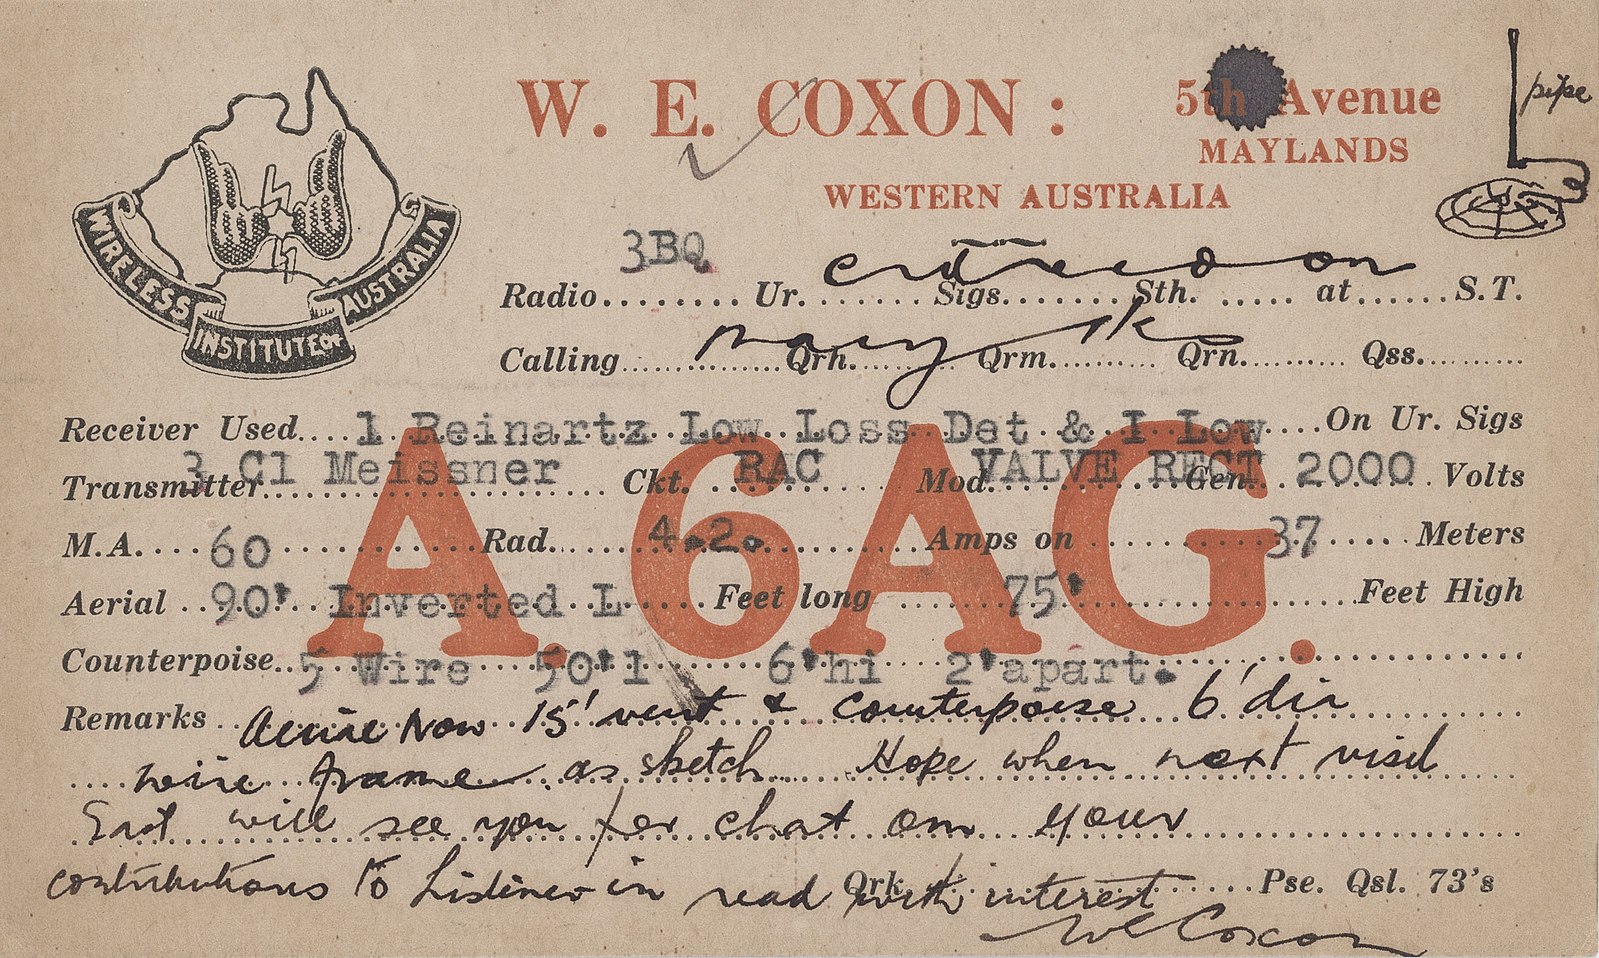 W. E. COXON : 5th Avenue
MAYLANDS
WESTERN AUSTRALIA
pipe
WIRELESS INSTITUTE OF AUSTRALIA
3BQ
Radio......... Ur. ....... Sigs....... Sth. ..... at...... S.T.
Calling............... Qrh. .......... Qrm.......... Qrn.......... Qss..........
many tks
Receiver Used.... 1 Reinartz Low Loss Det & I Low ....On Ur. Sigs
Transmitter 3 Cl Meissner Ckt. RAC Mod. VALVE RECT Gen. 2000 Volts
M.A. 60 Rad. 4.2. Amps on 37 Meters
Aerial 90' Inverted L Feet long 75' Feet High
Counterpoise 5 Wire 50'l 6'hi 2'apart.
A.6AG.
Remarks Aerial Now 15' vert & Counterpoise 6' dia
wire frame as sketch Hope when next visit
East will see you for chat om your
contributions to Listener in read with interest Qrk. Pse. Qsl. 73's
WE Coxon